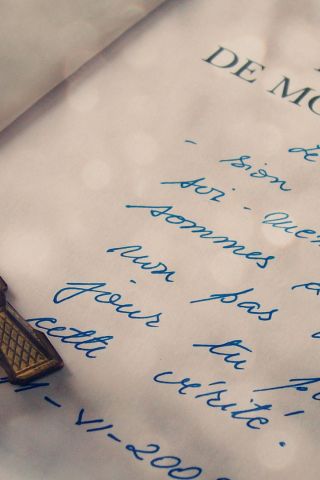 DE MO
- sion
soi-mem
sommes
mon pas
jour tu
cette vérité.
-VI-200